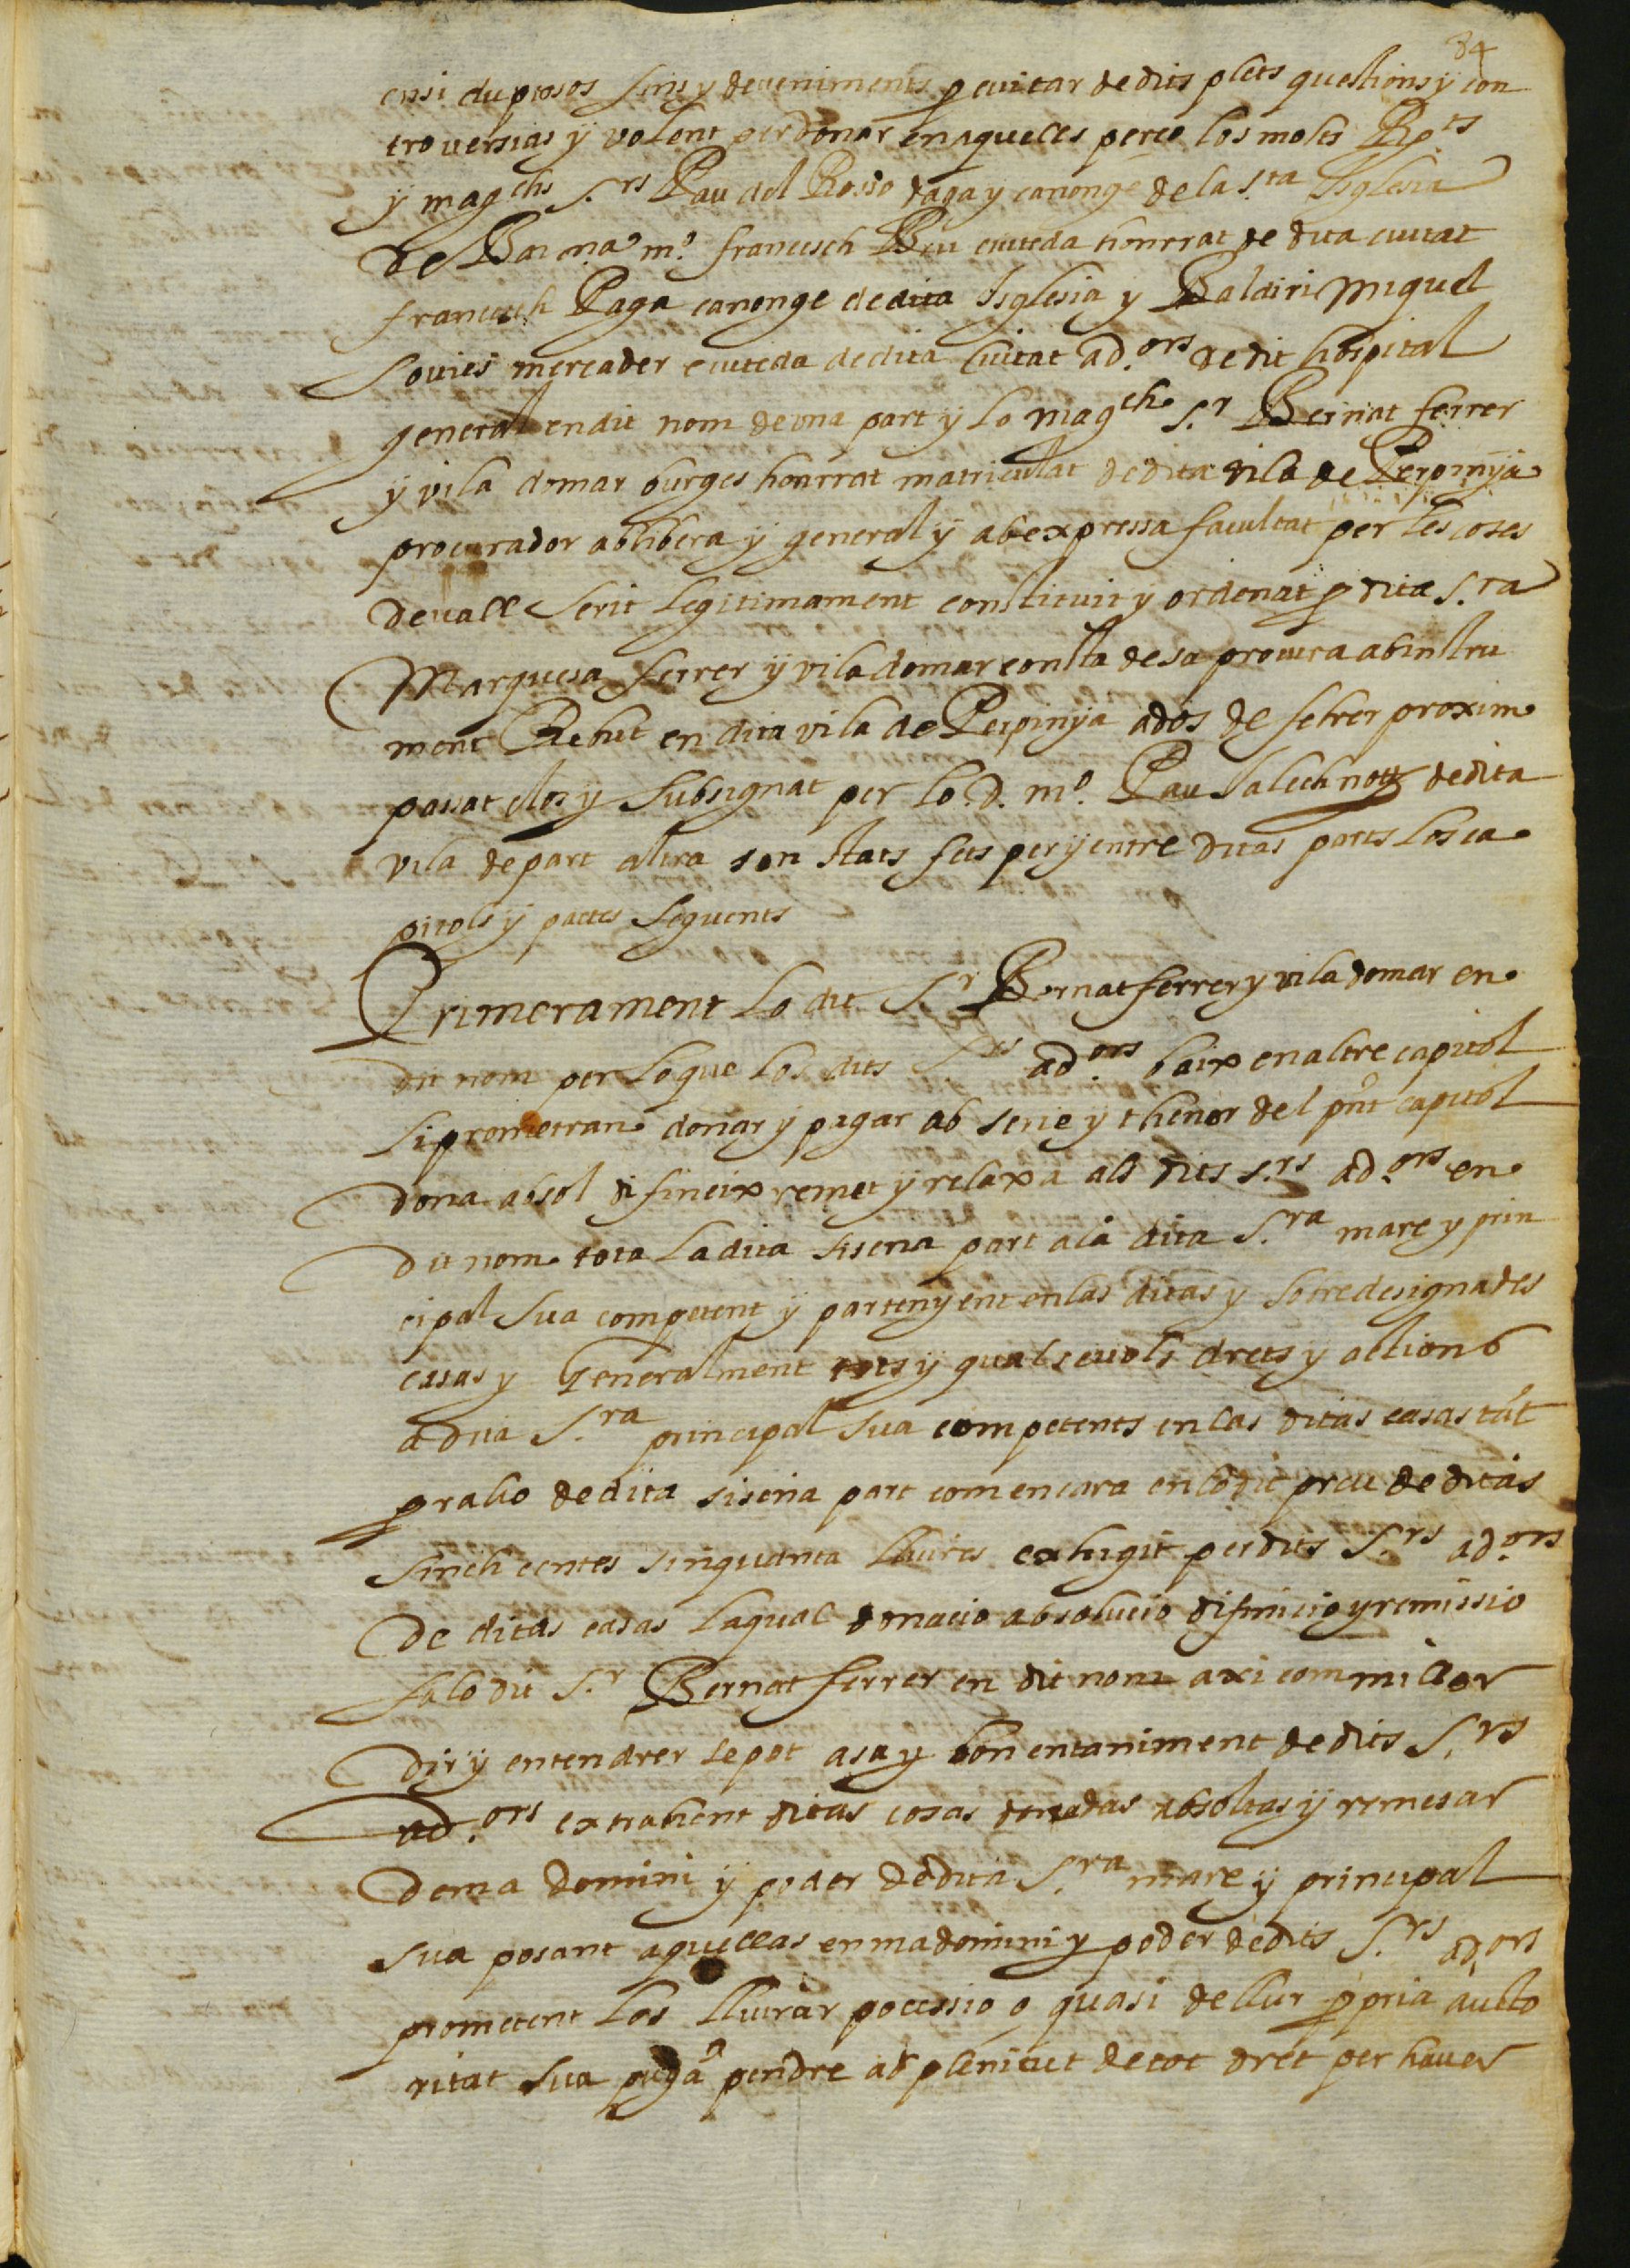 84
ensi duptosos fins y deveniments p evitar de dits plets questions ÿ con
troversias ÿ volent perdonar en aquelles perço los molts Rp.ts
ÿ magchs S.rs Pau del Rosso daga y canonge de la S.ta Isglesia
de Bar.na m.o francesch Bru ciuteda honrrat de dita ciutat
francesch Paga canonge de dita Isglesia y Baldiri Miquel
Sovies mercader ciuteda de dita ciutat ad.ors de dit hospital
general en dit nom de una part y lo magch S.r Bernat ferrer
ÿ vila domar burges honrrat matriculat de dita vila de Perpinÿa
procurador ab libera ÿ general ÿ ab expressa facultat per les coses
devall scrit legitimament constituit y ordenat p dita S.ra
Marquesa ferrer ÿ vila domar consta de sa procura ab instru
ment Rebut en dita vila de Perpinya a dos de febrer proxim
passat clos y subsignat per lo d. m.o Pau Salech not de dita
vila de part altra son stats fets per ÿ entre ditas parts los ca
pitols ÿ pactes seguents
Primerament lo dit S.r Bernat ferrer y vila domar en
dit nom per lo que los dits S.rs ad.ors baix en altre capitol
li prometran donar ÿ pagar ab serie y thenor del pnt capitol
dona absol difineix remet ÿ relaxa als dits s.rs ad.ors en
dit nom tota la dita sisena part a la dita S.ra mare y prin
cipal sua competent ÿ partenyent en las ditas y sobredesignades
casas y Generalment tots ÿ qualsevols drets y actions
a dita S.ra principal sua competents en las ditas casas tāt
p raho de dita sisena part com encara en lo dit preu de ditas
sinch centes sinquanta lliures exhigit per dits S.rs ad.ors
de ditas casas laqual donacio absolucio difinicio y remissio
fa lo dit S.r Bernat ferrer en dit nom axi com millor
dir ÿ entendrer se pot a sa y bon entaniment de dits S.rs
ad.ors extrahent ditas cosas donadas absoltas ÿ remesas
de ma domini ÿ poder de dita S.ra mare ÿ principal
sua posant aquellas en ma domini y poder de dits S.rs ad.ors
prometent los lliurar pocessio o quasi de llur ppria aucto
ritat sua puga pendre ab plenitut de tot dret per haver